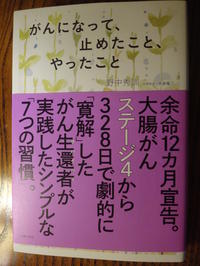 がんになって、
止めたこと、
やったこと
野中秀訓
余命12カ月宣告。
大腸がん
ステージ4から
328日で劇的に
「寛解」した
がん生還者が
実践したシンプルな
「7つの習慣」。